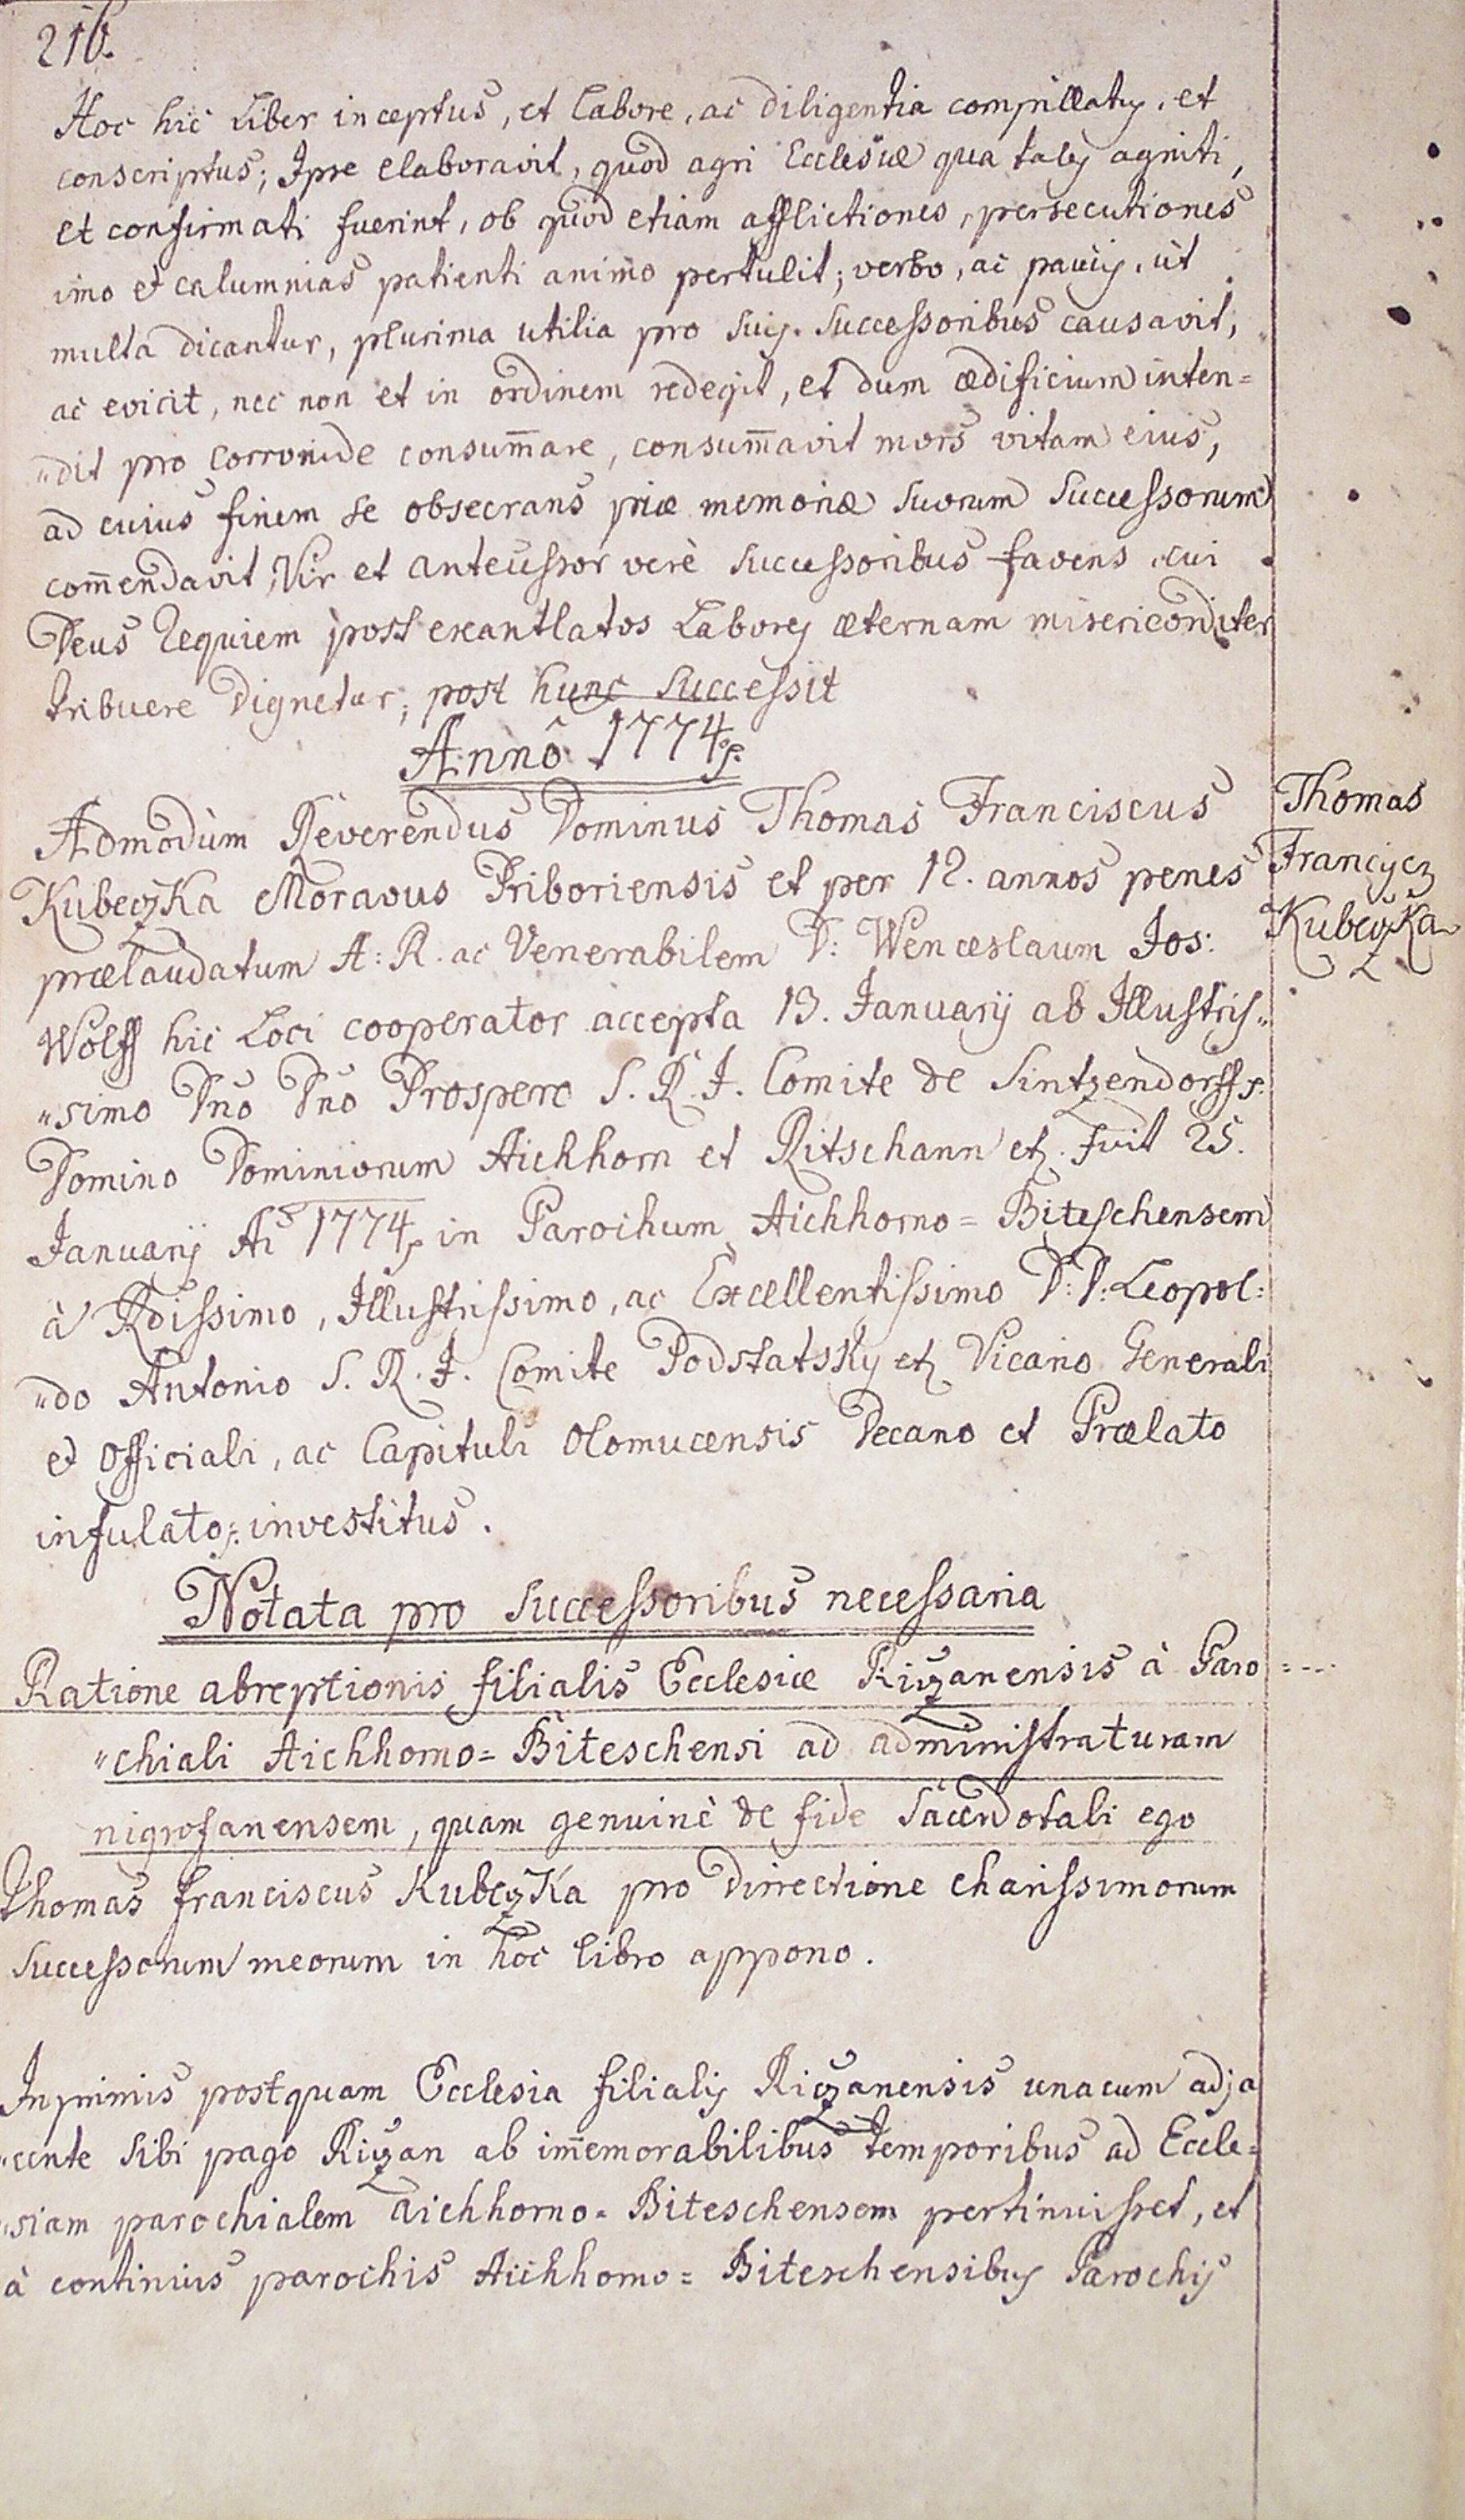 216.
Hoc hic Liber inceptus, et labore, ac diligentia compillatus, et
conscriptus; Ipse elaboravit, quod agri Ecclesiæ qua tales agniti,
et confirmati fuerint, ob quod etiam afflictiones, persecutiones
imo et calumnias patienti animo pertulit; verbo, ac paucis, ut
multa dicantur, plurima utilia pro suis successoribus causavit,
ac evicit, nec non et in ordinem redegit, et dum ædificium inten=
"dit pro corronide consum̄are, consum̄avit mors vitam eius,
ad cuius finem se obsecrans piæ memoriæ suorum successorum
com̄endavit, Vir et antecessor verè successoribus favens, cui
Deus requiem post exantlatos Labores æternam misericorditer
tribuere dignetur, post hunc successit
Annô 1774
Admodùm Reverendus Dominus Thomas Franciscus
Kubeczka Moravus Priboriensis et per 12. annos penes
prælaudatum A: R. ac Venerabilem D: Wenceslaum Jos:
Wolff hic Loci cooperator accepta 13. Januarij ab Illustris"
"simo Dño Dño Prospero S. R. I. Comite de Sintzendorff
Domino Dominiorum Aichhorn et Ritschann etz. fuit 25.
Januarij Ai 1774 in Parochum Aichhorno=Biteschensem
à Rdissimo, Illustrissimo, ac Excellentissimo D: D: Leopol:
"do Antonio S. R. I. Comite Podstatsky etz Vicario Generali
et Officiali, ac Capituli Olomucensis Decano et Prælato
infulato: investitus.
Thomas
Francisc9
Kubeczka
Notata pro successoribus necessaria
Ratione abreptionis filialis Ecclesiæ Riczanensis à Paro
"chiali Aichhorno=Biteschensi ad administraturam
nigrofanensem, quam genuinè de fide sacerdotali ego
Thomas Franciscus Kubeczka pro directione charissimorum
successorum meorum in hoc libro appono.
Inprimis postquam Ecclesia filialis Riczanensis unacum adja
"cente sibi pago Riczan ab im̄emorabilibus temporibus ad Eccle=
"siam parochialem Aichhorno=Biteschensem pertinuisset, et
à continuis parochis Aichhorno=Biteschensibus Parochis